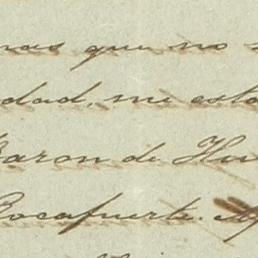 mas que no
dad, me est
Baron de Hu
Rocafuerte.